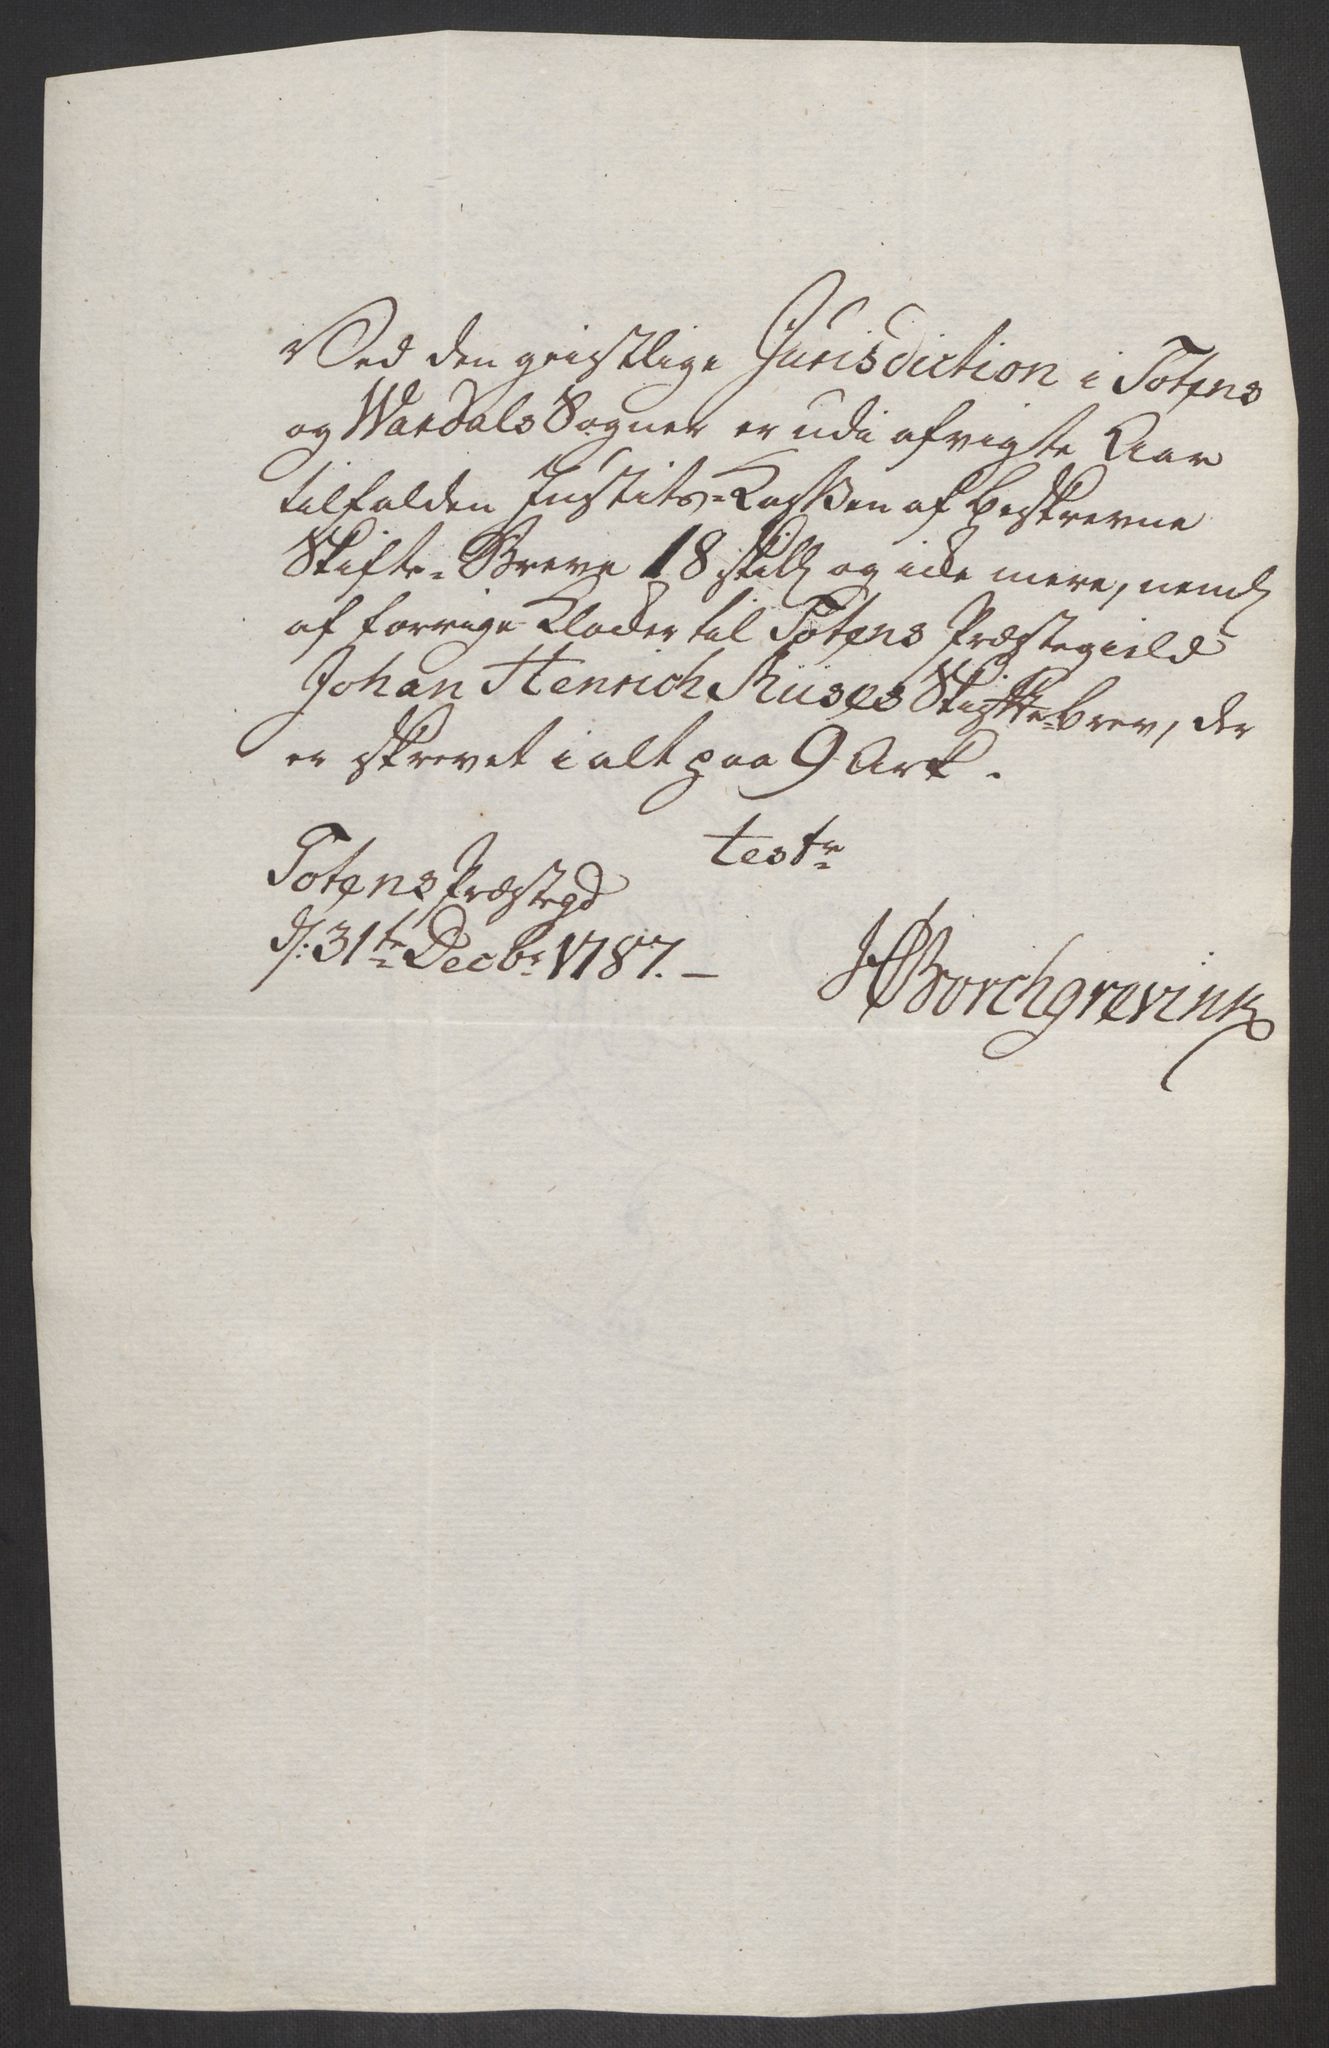 Ved den geistlige Jurisdiction i Totens
og Wardals Sogner er udi afvigte Aar
tilfalden Justits-Kassen af beskrevne
Skifte-Breve 18 skill og icke mere, neml
af forrige Klocker til Totens Præstegield
Johan Henrich Riises Skifte-brev, der
er skrevet i alt paa 9 Ark.
test
Totens Præstegd
d: 31te Decbr 1787. –
HC Borchgrevink